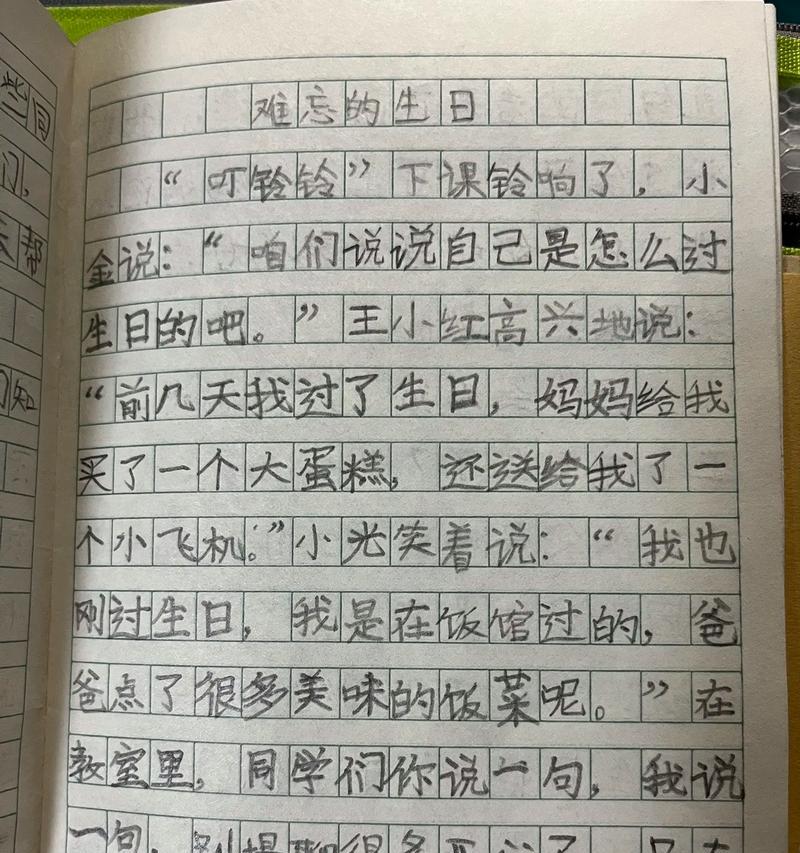 些同
门，
帮
知
难忘的生日
“叮铃铃”下课铃响了，小
金说：“咱们说说自己是怎么过
生日的吧。”王小红高兴地说：
“前几天我过了生日，妈妈给我
买了一个大蛋糕，还送给我了一
个小飞机。”小光笑着说：“我也
刚过生日，我是在饭馆过的，爸
爸点了很多美味的饭菜呢。”在
教室里，同学们你说一句，我说
一句，别提聊很多开心了